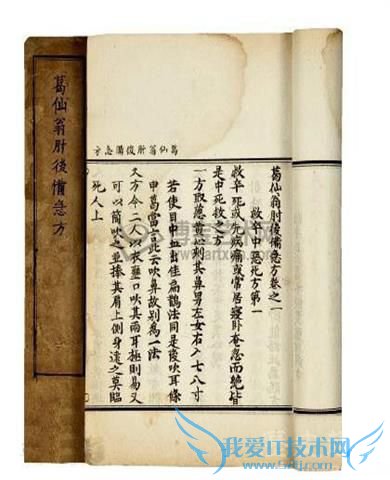 葛仙翁肘後備急方
葛仙翁肘後備急方
葛仙翁肘後備急方卷之一
救卒中惡死方第一
救卒死或先病痛或常居寢卧奄忽而絶皆
是中死救之方
一方取葱黄心刺其鼻男左女右入七八寸
若使目中血出佳扁鵲法同是後吹耳條
中葛當言此云吹鼻故别為一法
又方令二人以衣壅口吹其兩耳極則易又
可以筒吹之並捧其肩上側身遠之莫臨
死人上
我爱IT技术网